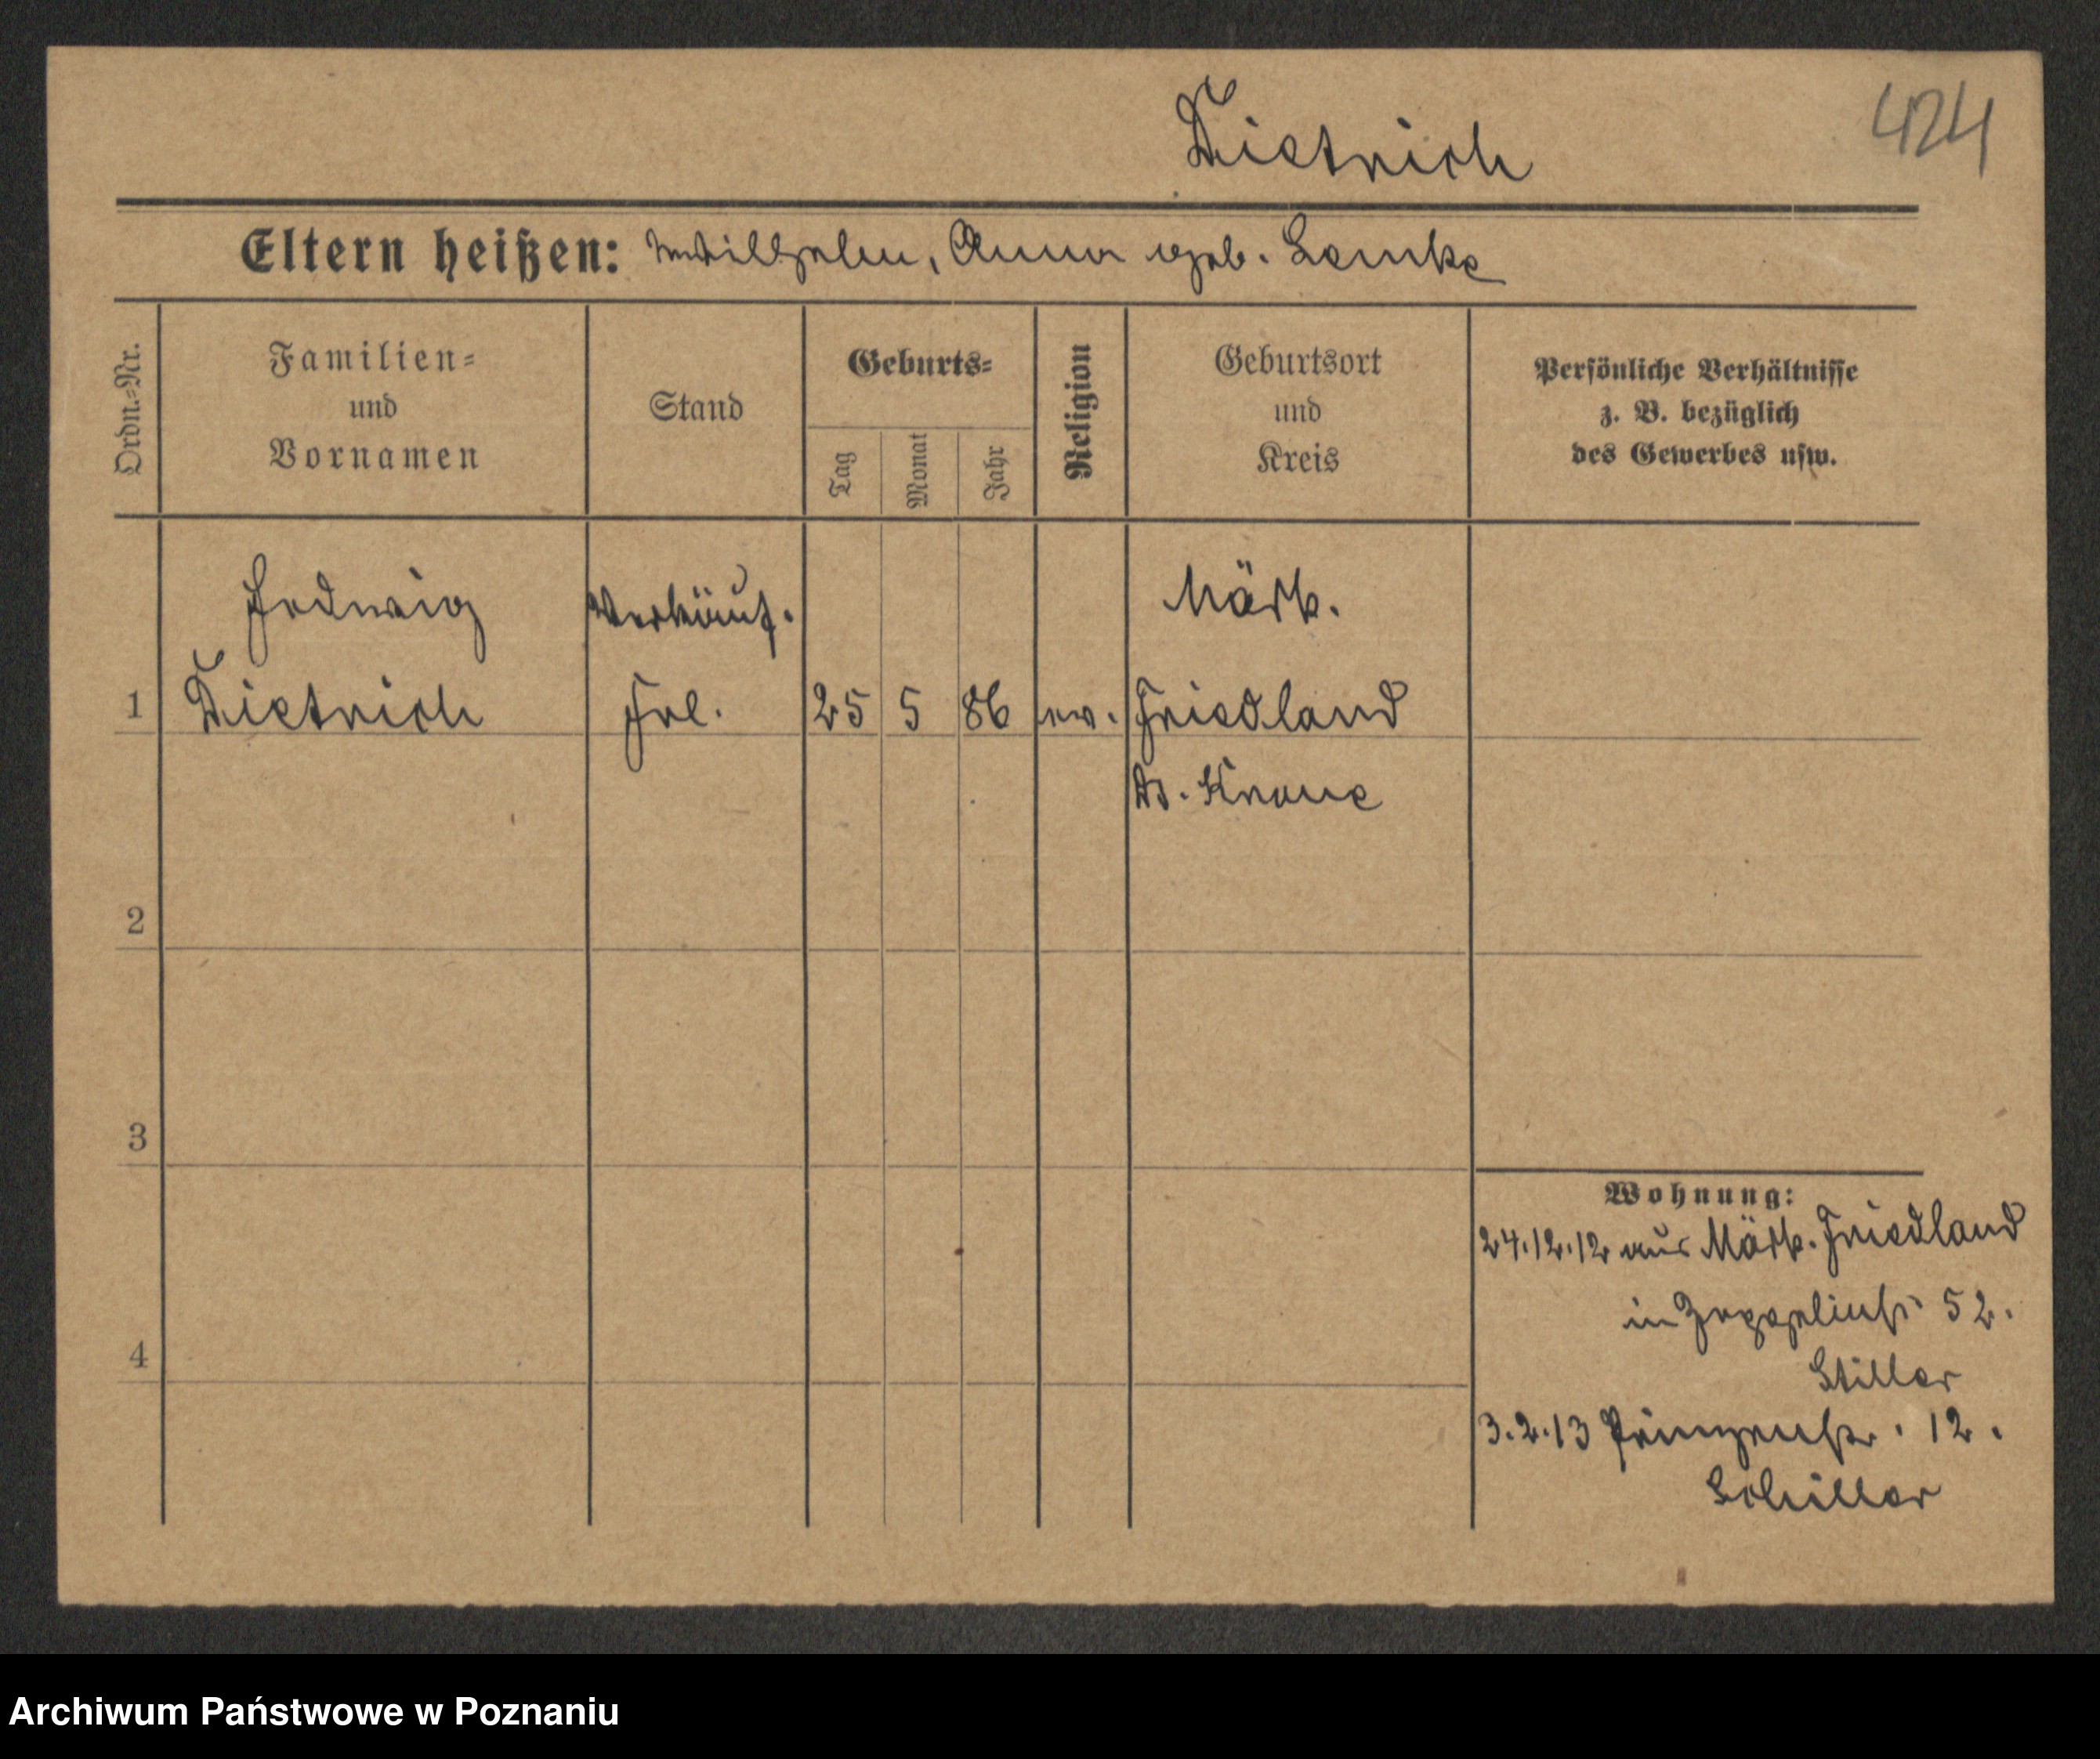 Dietrich
424
Eltern heißen: Wilhelm, Anna geb. Lemke
Ordn.-Nr.
Familien-
und
Vornamen
Stand
Geburts-
Tag
Monat
Jahr
Religion
Geburtsort
und
Kreis
Persönliche Verhältnisse
z. B. bezüglich
des Gewerbes usw.
Hedwig Verkäuf. Märk.
1 Dietrich Frl. 25 5 86 ev. Friedland
Dt. Krone
2
3
4
Wohnung:
24.12.12 aus Märk. Friedland
in Zeppelinstr 52.
Stiller
3.2.13 Prinzenstr. 12.
Schiller
Archiwum Państwowe w Poznaniu